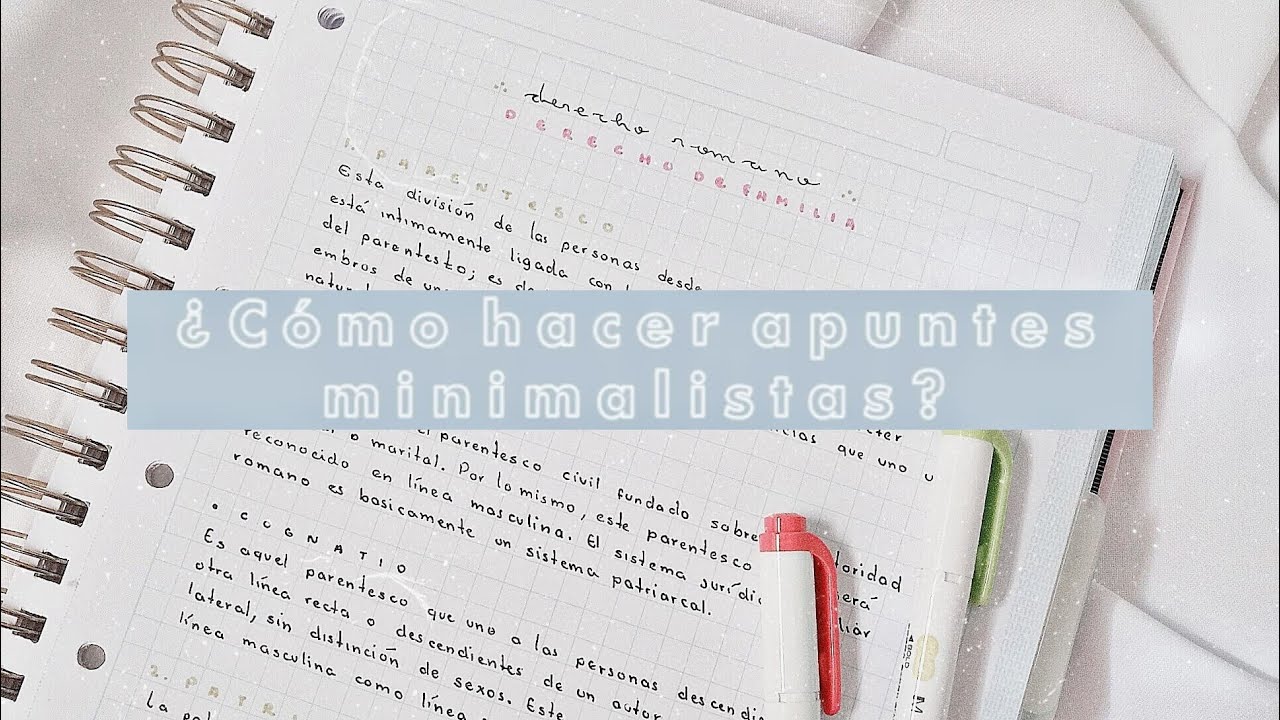 derecho romano
DERECHO DE FAMILIA
1. PARENTESCO
Esta división de las personas desde
está íntimamente ligada con
del parentesto; es
embros de
¿Cómo hacer apuntes
minimalistas?
que uno u
parentesco civil fundado
o marital. Por lo mismo, este parentesco
reconocido en línea masculina. El sistema
romano es basicamente un sistema patriarcal.
• COGNATIO
Es aquel parentesco que uno a las personas
otra línea recta o descendientes de un autor
lateral, sin distinción de sexos. Este
línea masculina como línea
2.
la
BOLD